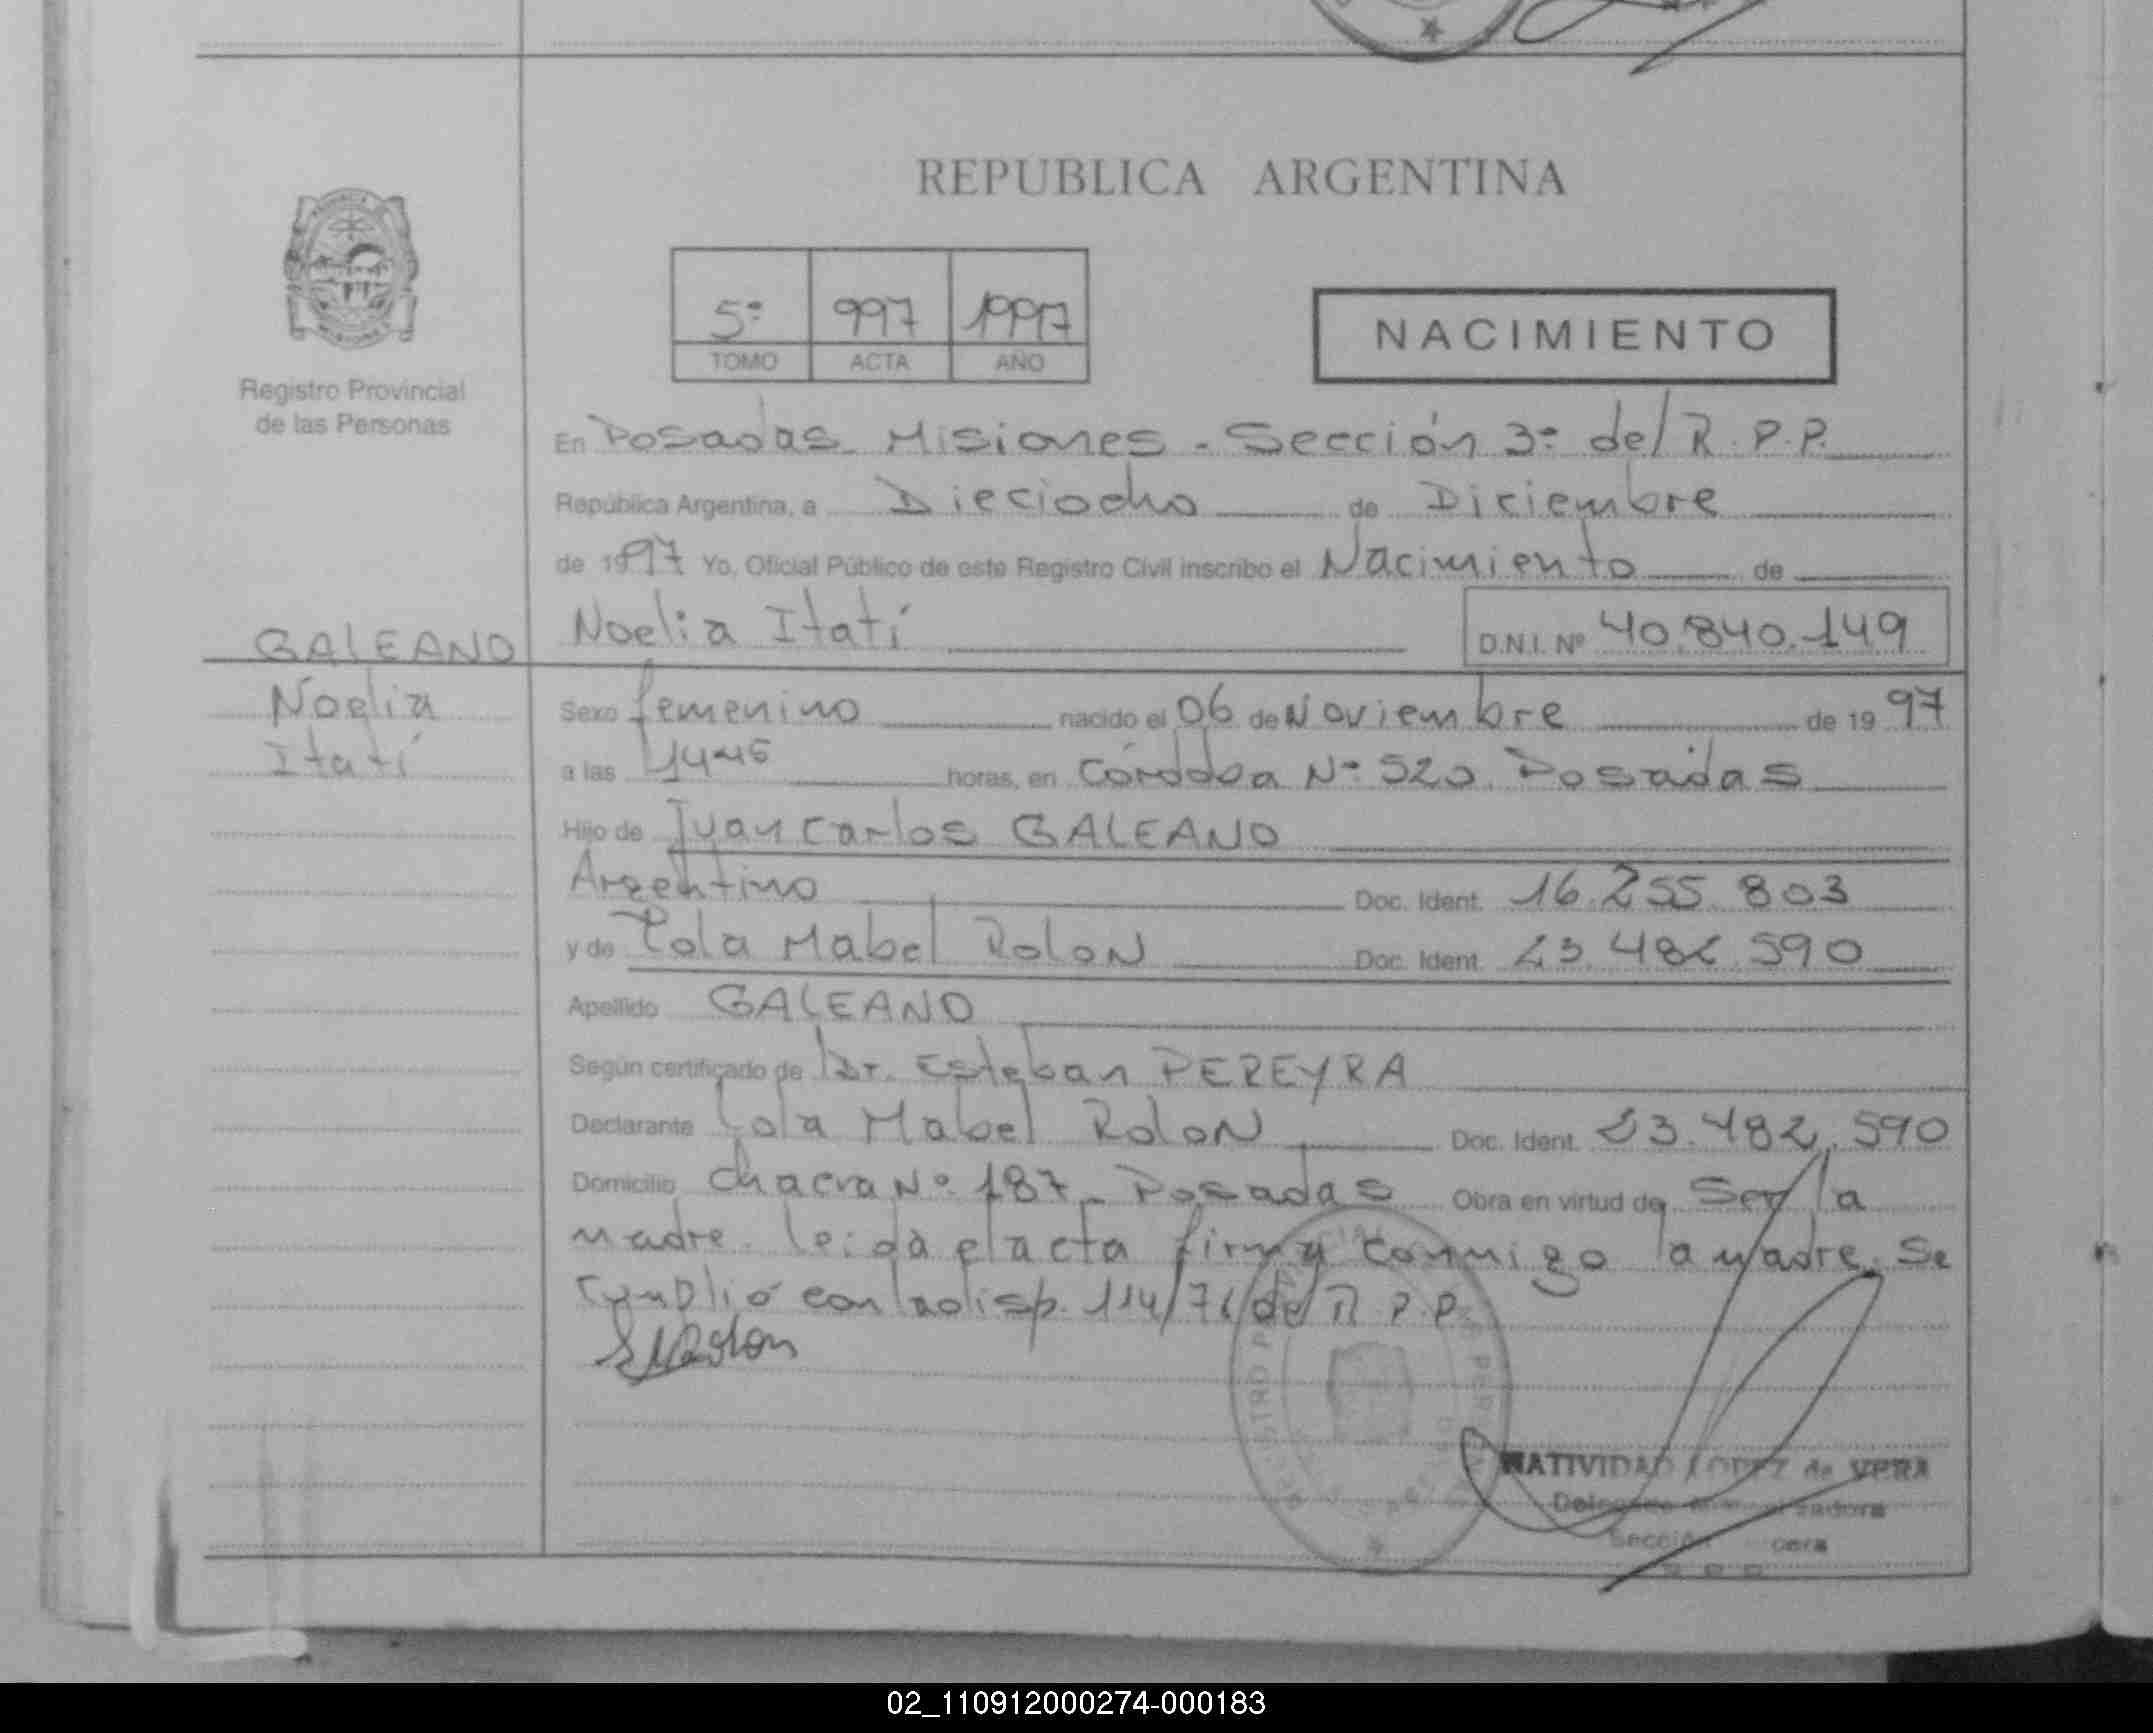 REPUBLICA ARGENTINA
5º 997 1997
TOMO ACTA AÑO
NACIMIENTO
Registro Provincial
de las Personas
En Posadas Misiones - Sección 3º del R.P.P.
República Argentina, a Dieciocho de Diciembre
de 1997 Yo, Oficial Público de este Registro Civil inscribo el Nacimiento de
Noelia Itatí D.N.I. Nº 40.840.149
GALEANO
Noelia
Itatí
Sexo femenino nacido el 06 de Noviembre de 19 97
a las 14-45 horas, en Córdoba Nº 520. Posadas
Hijo de Juan Carlos GALEANO
Argentino Doc. Ident. 16.255.803
y de Lola Mabel Rolon Doc. Ident. 23.482.590
Apellido GALEANO
Según certificado de Dr. Esteban PEREYRA
Declarante Lola Mabel Rolon Doc. Ident. 23.482.590
Domicilio chacra Nº 187 - Posadas Obra en virtud de Ser la
madre. leida el acta firma conmigo la madre. Se
cumplió con la disp. 114/76 del R.P.P.
NATIVIDAD LOPEZ de VERA
Sección
02_110912000274-000183